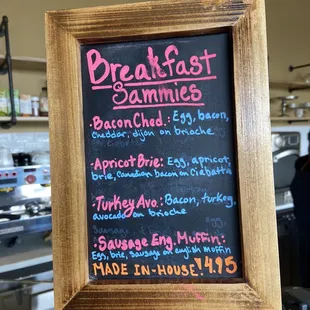 Breakfast
Sammies
·Bacon Ched.: Egg, bacon,
cheddar, dijon on brioche
·Apricot Brie: Egg, apricot,
brie, Canadian bacon on Ciabatta
·Turkey Avo: Bacon, turkey,
avocado on brioche
·Sausage Eng. Muffin:
Egg, brie, Sausage on english muffin
MADE IN-HOUSE! 4.95